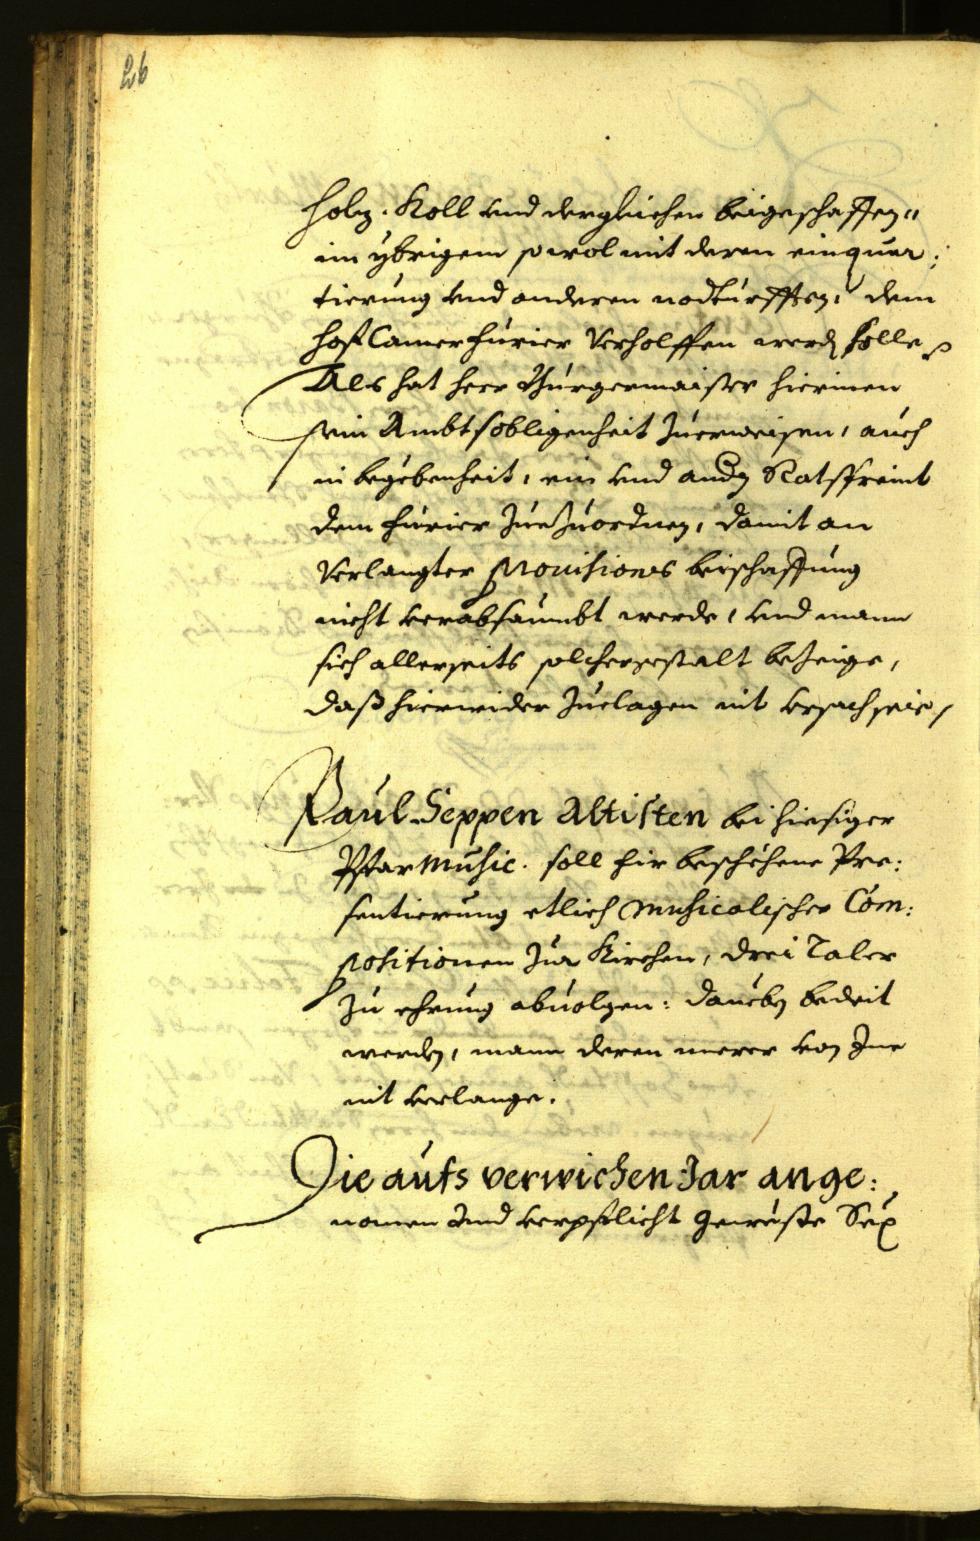 26
Holz, Koll vnd dergleichen beigeschaffen,
im ybrigem sowol mit deren einquar:
tierung vnd anderen nodturfften, dem
Hof Camerfurier Verholffen werdn solle
Als hat Herr Burgermaister hierinen
sein Ambtsobligenheit Zuerweisen, auch
in begebenheit, ein vnd andn Ratsfreint
dem furier Zuezuordnen, damit an
Verlangter Provisiones beischaffung
nicht verabsaumbt werde, vnd mann
sich allerseits solchergestalt bezeige,
daß hierwider Zuclagen nit vrsach seie,
Paul Seppen Altisten bei hiesiger
Pfarmusic. soll fir beschehene Pre:
sentierung etlich Musicalischer Com:
positionen Zur Kirchen, drei Taler
Zu ehrung abuolgen: daneben bedeit
werden, mann deren merer von Ime
nit verlange.
Die aufs verwichen Jar ange:
nomen Vnd verpflicht geweste Sex